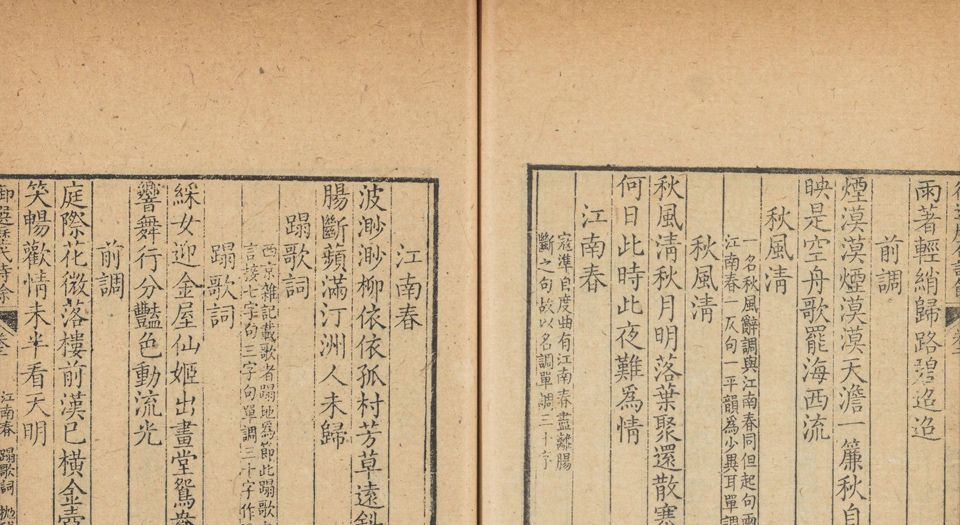 雨著輕綃歸路碧迢迢
前調
煙漠漠煙漠漠天澹一簾秋自
映是空舟歌罷海西流
秋風清
一名秋風辭調與江南春同但起句兩
江南春一仄句一平韻為少異耳單調
秋風清
秋風清秋月明落葉聚還散寒
何日此時此夜難為情
江南春
寇準自度曲有江南春盡離腸
斷之句故以名調單調三十字
江南春
波渺渺柳依依孤村芳草遠斜
腸斷蘋滿汀洲人未歸
蹋歌詞
西京雜記載歌者蹋地為節此蹋歌
七字句三字句單調三十字作
蹋歌詞
綵女迎金屋仙姬出畫堂鴛鴦
舞行分豔色動流光
前調
庭際花微落樓前漢已橫金壺
笑暢歡情未半看天明
御選歷代詩餘 卷二 江南春 蹋歌詞 拋